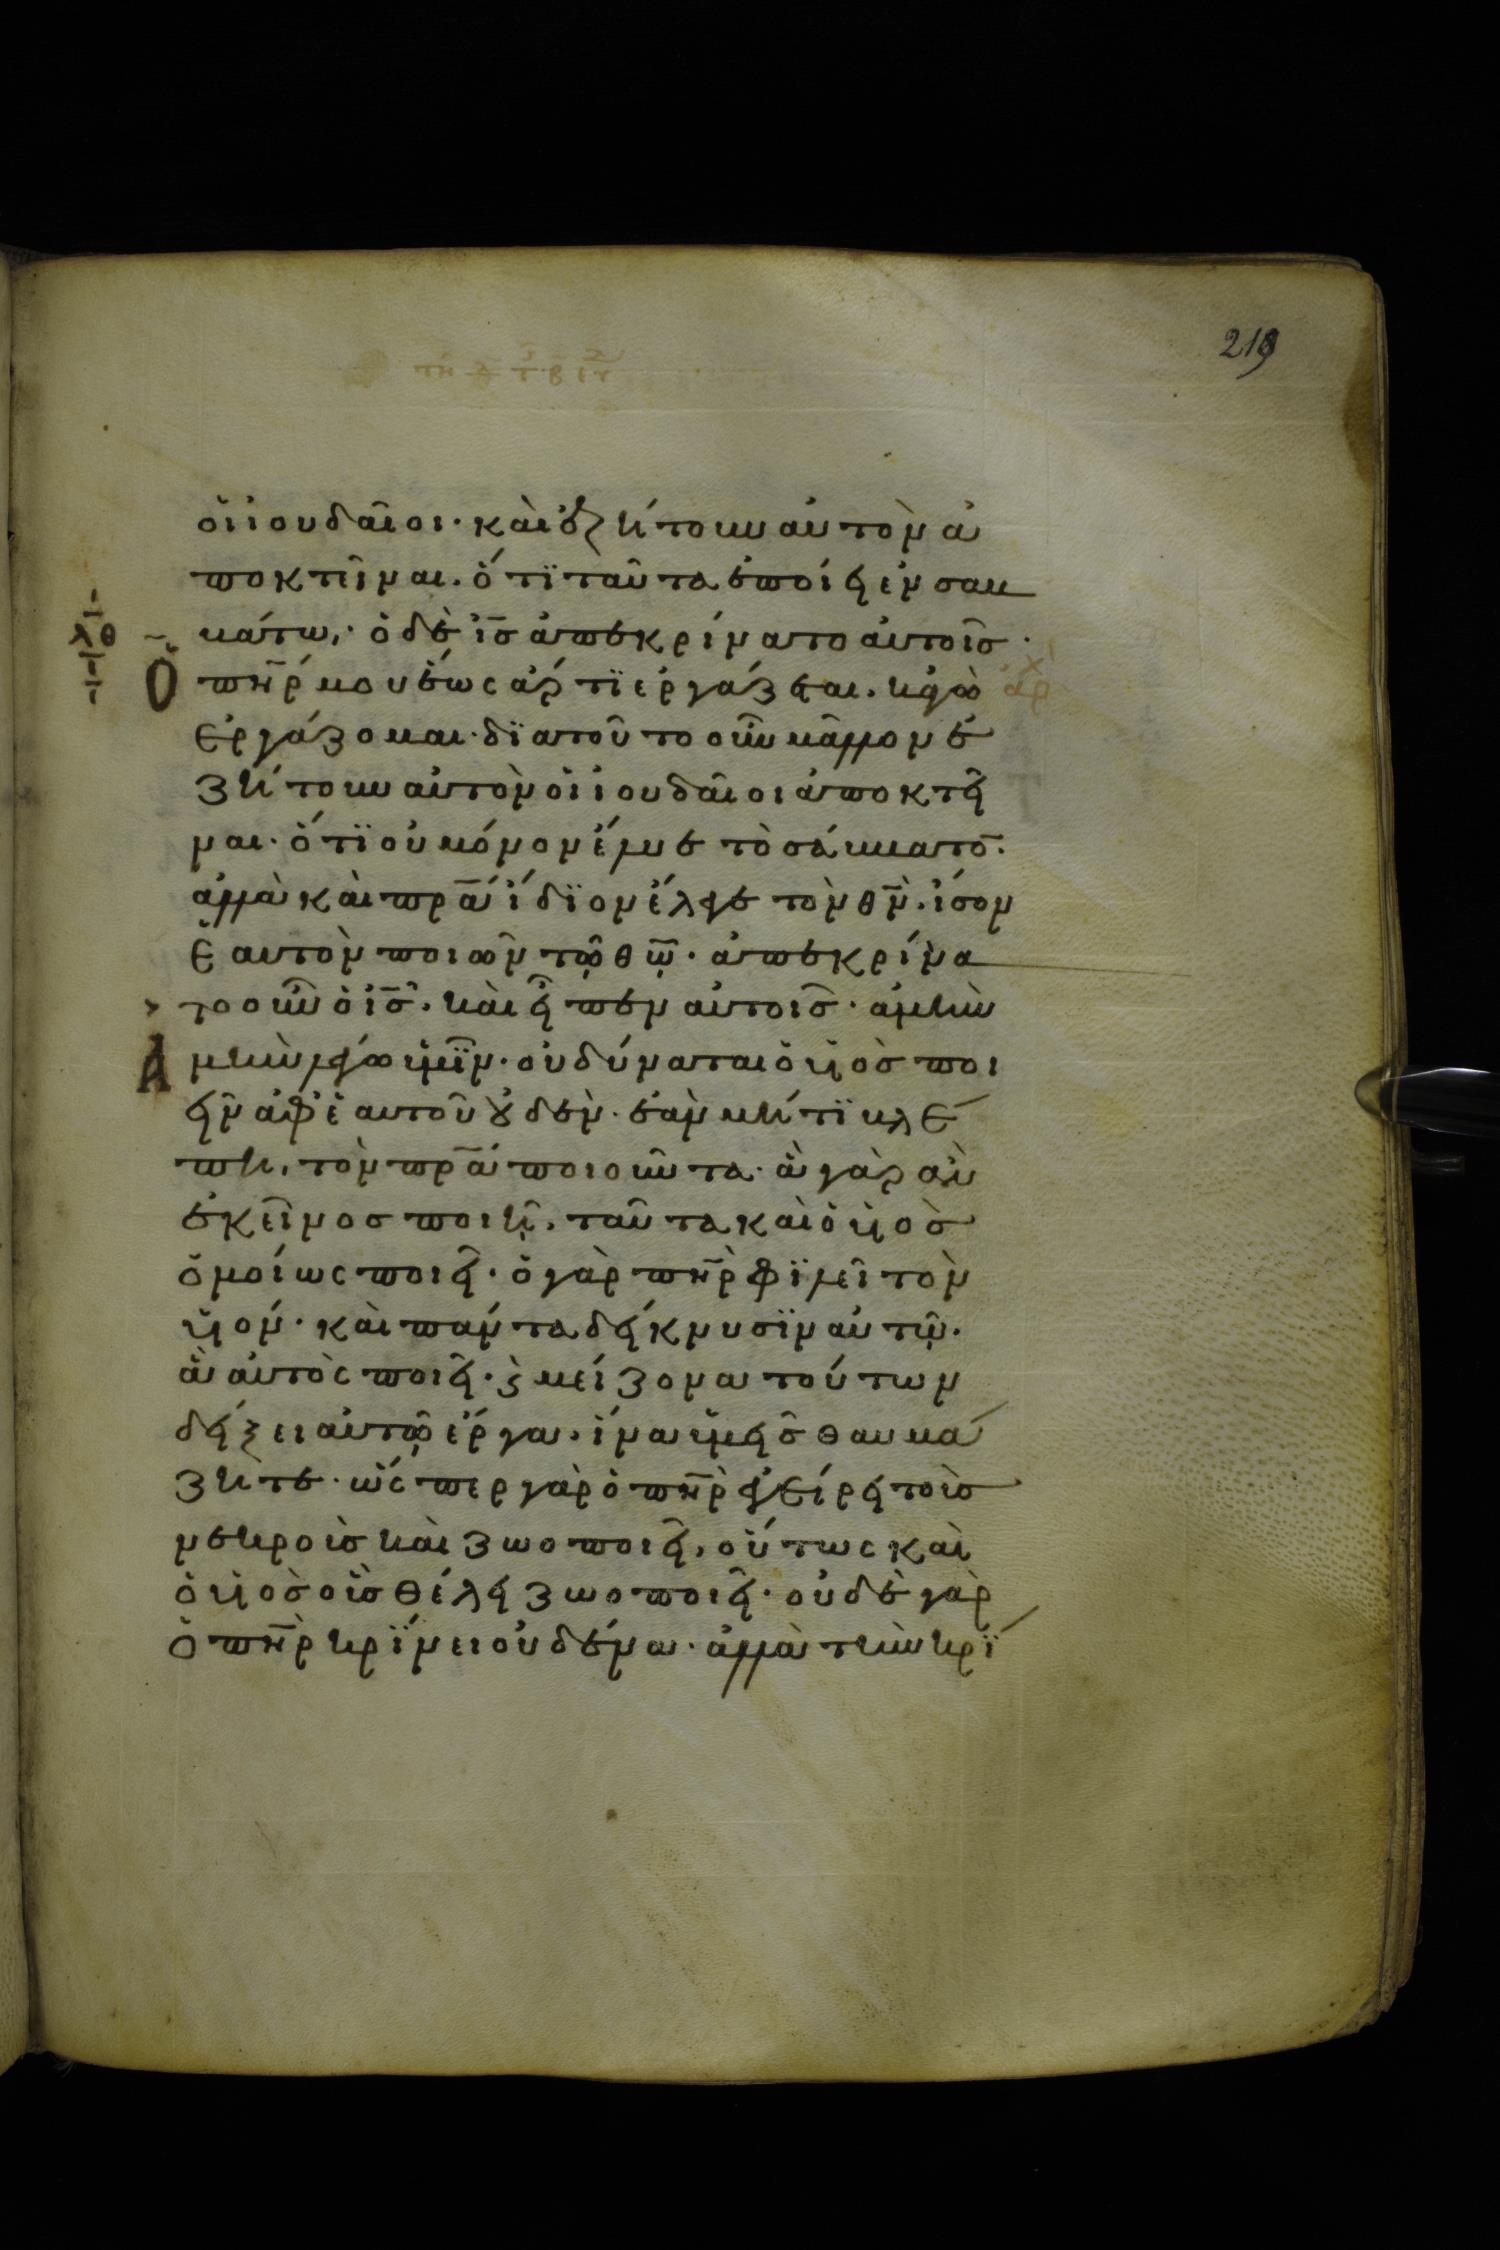 219
οἱ ἰουδαῖοι· καὶ ἐζήτουν αὐτὸν ἀ
ποκτεῖναι. ὅτϊ ταῦτα ἐποίει ἐν σαβ
βάτω,· ὁ δὲ ἰς̅ ἀπεκρίνατο αὐτοῖς·
λθ
Ὁ
πη̅ρ μου ἕως ἄρτϊ ἐργάζεται. κἀγὼ
ἐργάζομαι· δϊατοῦτο οὖν μᾶλλον ἐ
ζήτουν αὐτὸν οἱ ἰουδαῖοι ἀποκτεῖ
ναι· ὅτϊ οὐ μόνον ἔλυε τὸ σάββατο̅·
ἀλλὰ καὶ πρ̅α ἴδϊον ἔλεγε τὸν θ̅ν. ἴσον
ἑαυτὸν ποιῶν τῷ θ̅ῳ· ἀπεκρίνα
το οὖν ὁ ἰς̅. καὶ εἶπεν αὐτοῖς· ἀμὴν
Α
μὴν λέγω ὑμῖν· οὐ δύναται ὁ υἱὸς ποι
εῖν ἀφ᾽ ἑαυτοῦ οὐδὲν· ἐὰν μή τϊ βλέ
πη, τὸν πρ̅α ποιοῦντα· ἃ γὰρ ἂν
ἐκεῖνος ποιῇ. ταῦτα καὶ ὁ υἱὸς
ὁμοίως ποιεῖ· ὁ γὰρ πη̅ρ φϊλεῖ τὸν
υἱόν· καὶ πάντα δείκνυσϊν αὐτῷ·
ἃ αὐτὸς ποιεῖ· ϗ μείζονα τούτων
δείξει αὐτῷ ἔργα. ἵνα ὑμεῖς θαυμά
ζητε· ὥσπερ γὰρ ὁ πη̅ρ ἐγείρει τοὺς
νεκροὺς καὶ ζωοποιεῖ, οὕτως καὶ
ὁ υἱὸς οὓς θέλει ζωοποιεῖ· οὐδὲ γὰρ
ὁ πη̅ρ κρϊνει οὐδένα· ἀλλὰ τὴν κρϊ